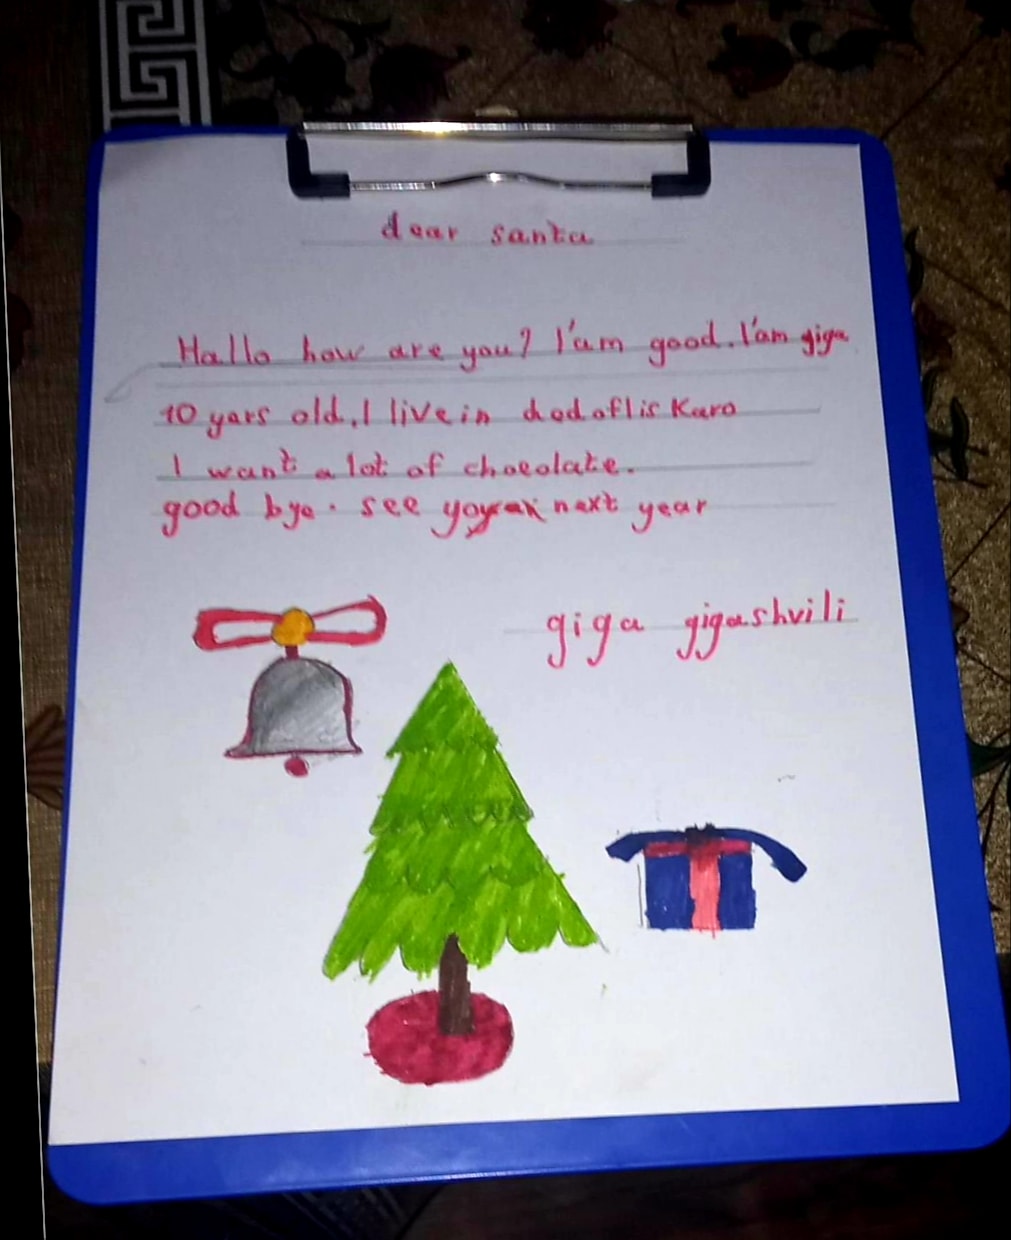 dear santa
Hallo how are you? I'am good. I'am giga
10 yars old. I live in dedoflis Karo
I want a lot of chocolate.
good bye. see next year
giga gigashvili